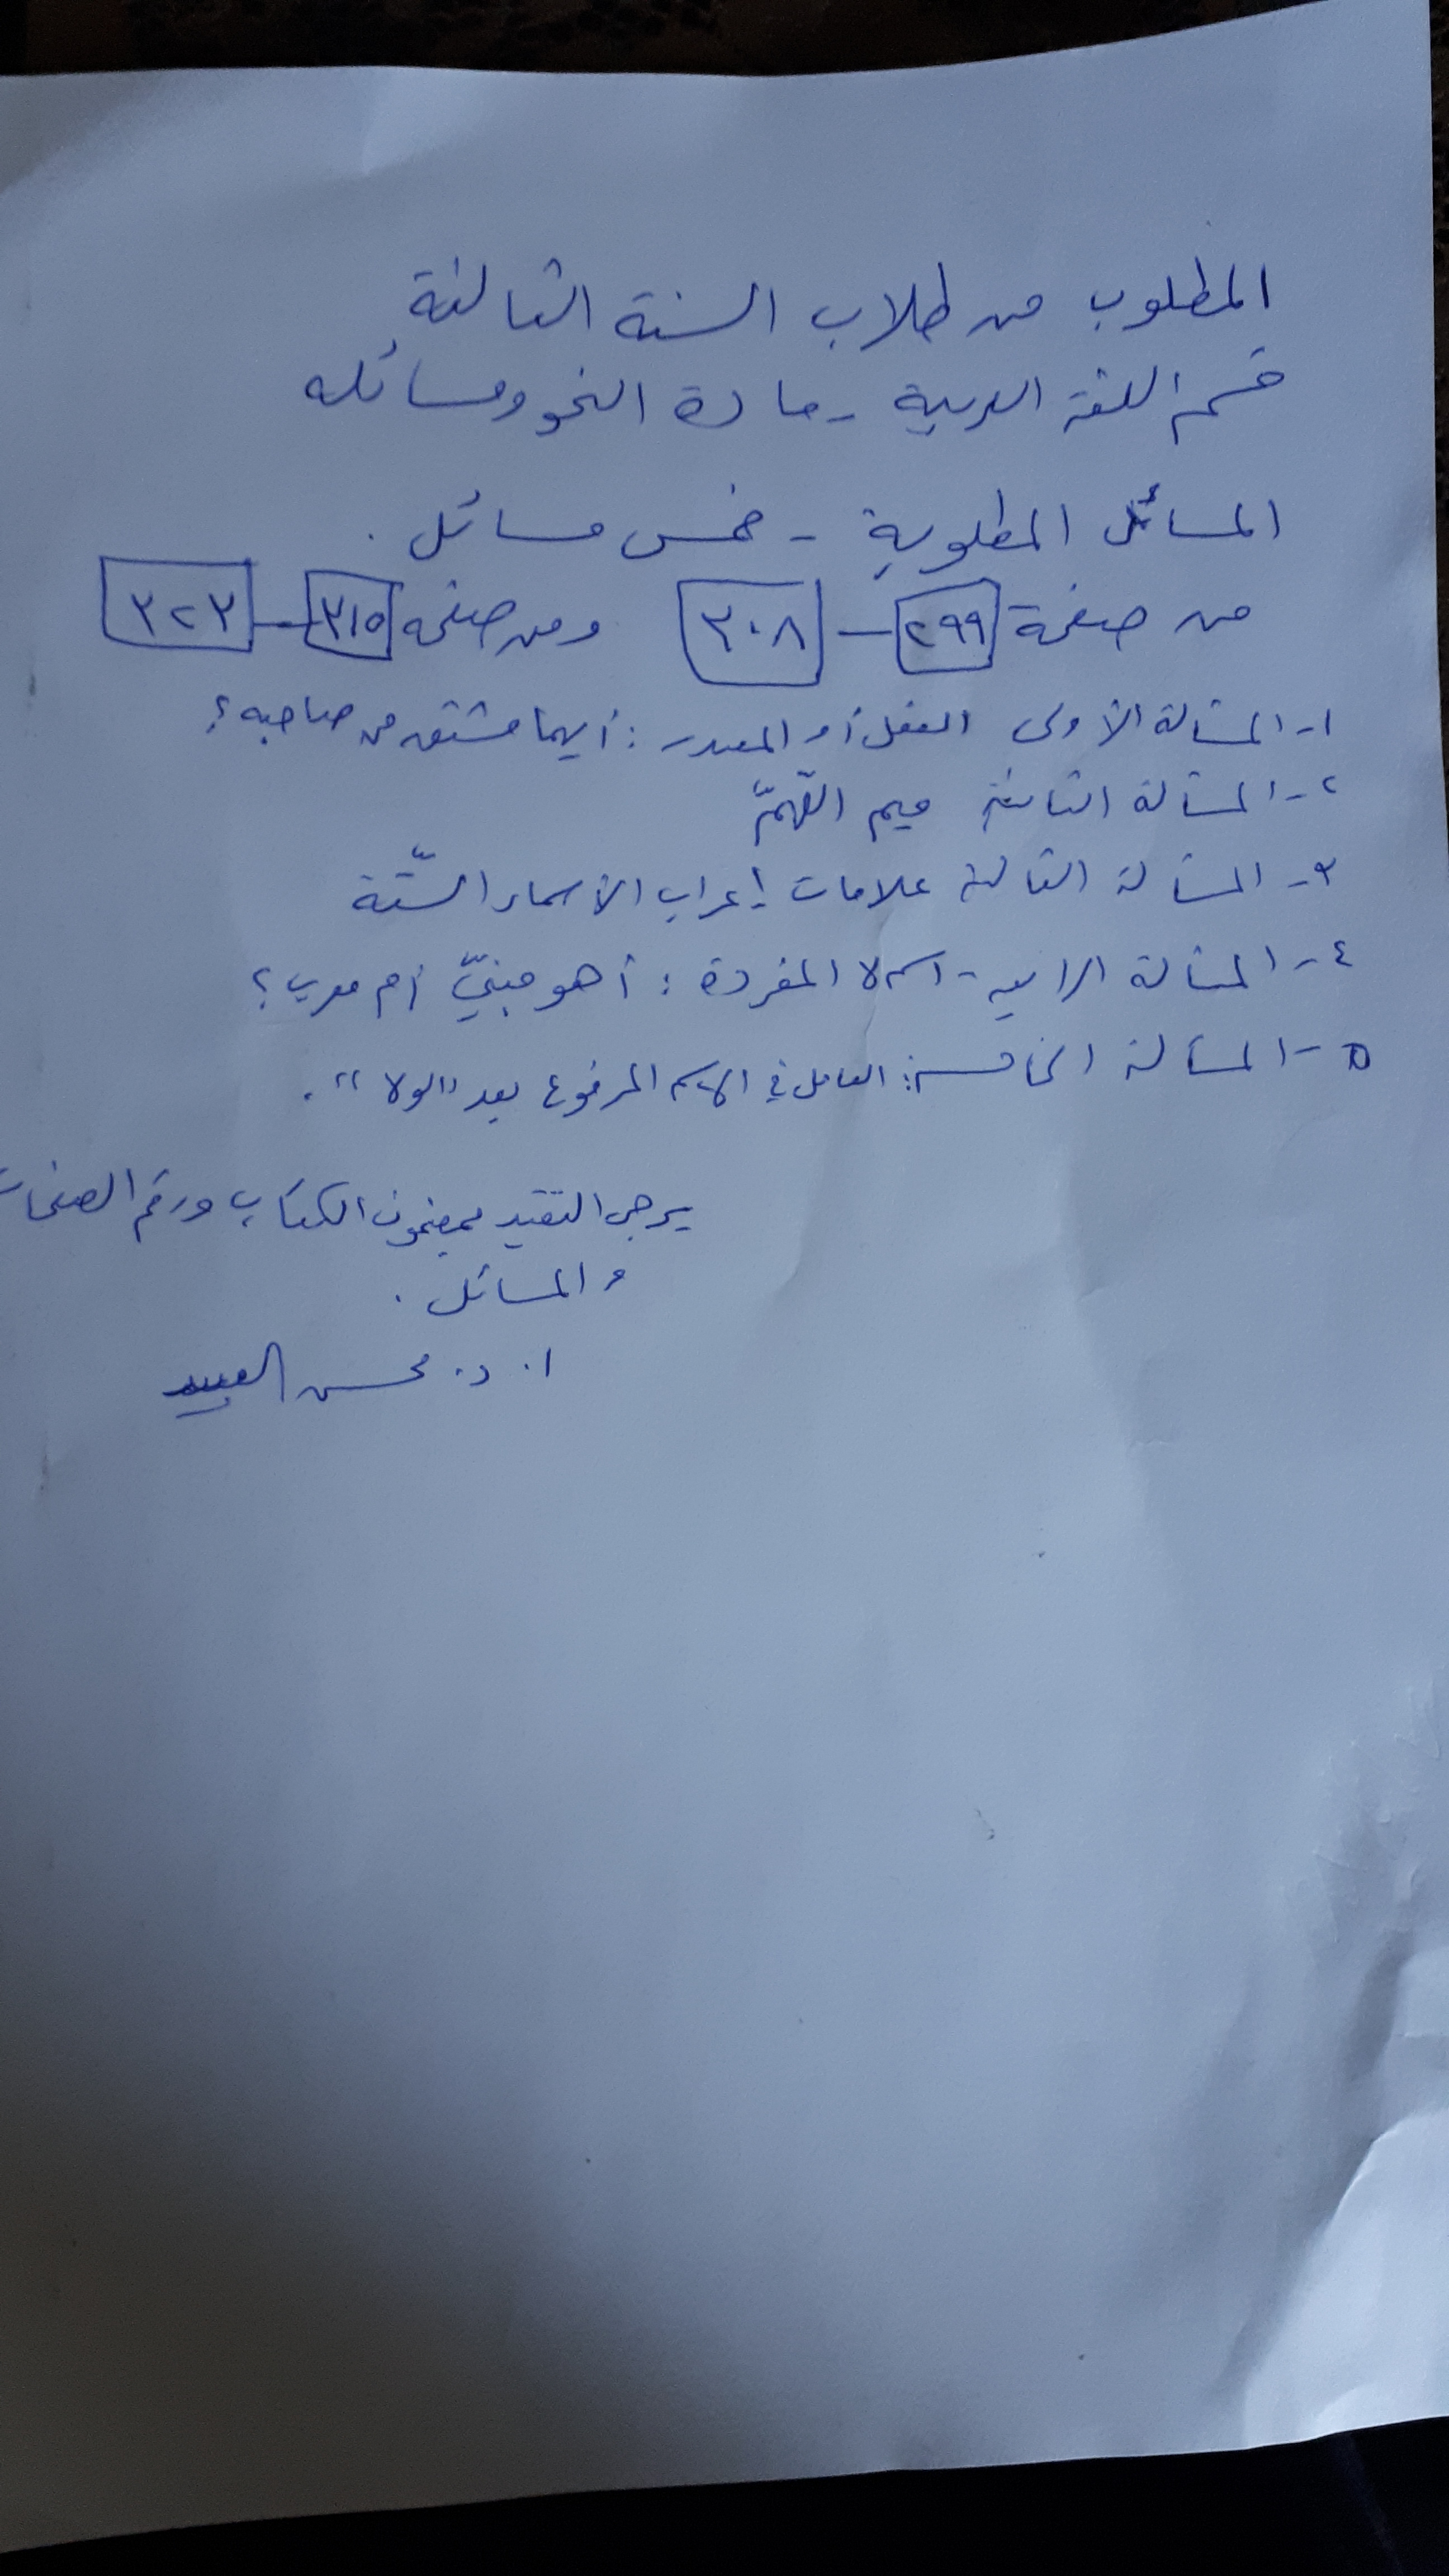 المطلوب من طلاب السنة الثالثة
قسم اللغة العربية - مادة النحو ومسائله
المسائل المطلوبة - خمس مسائل .
من صفحة ٢٩٩ - ٣٠٨ ومن صفحة ٣١٥ - ٣٢٣
١- المسألة الأولى الفعل أو المصدر : أيهما مشتق من صاحبه ؟
٢- المسألة الثانية ميم اللّهمّ
٣- المسألة الثالثة علامات إعراب الأسماء الستّة
٤- المسألة الرابعة - اسم لا المفردة : أهو مبنيّ أم معرب ؟
٥- المسألة الخامسة : العامل في الاسم المرفوع بعد "لولا" .
يرجى التقيد بمضمون الكتاب ورقم الصفحات
والمسائل .
ا. د. محسن العبيد